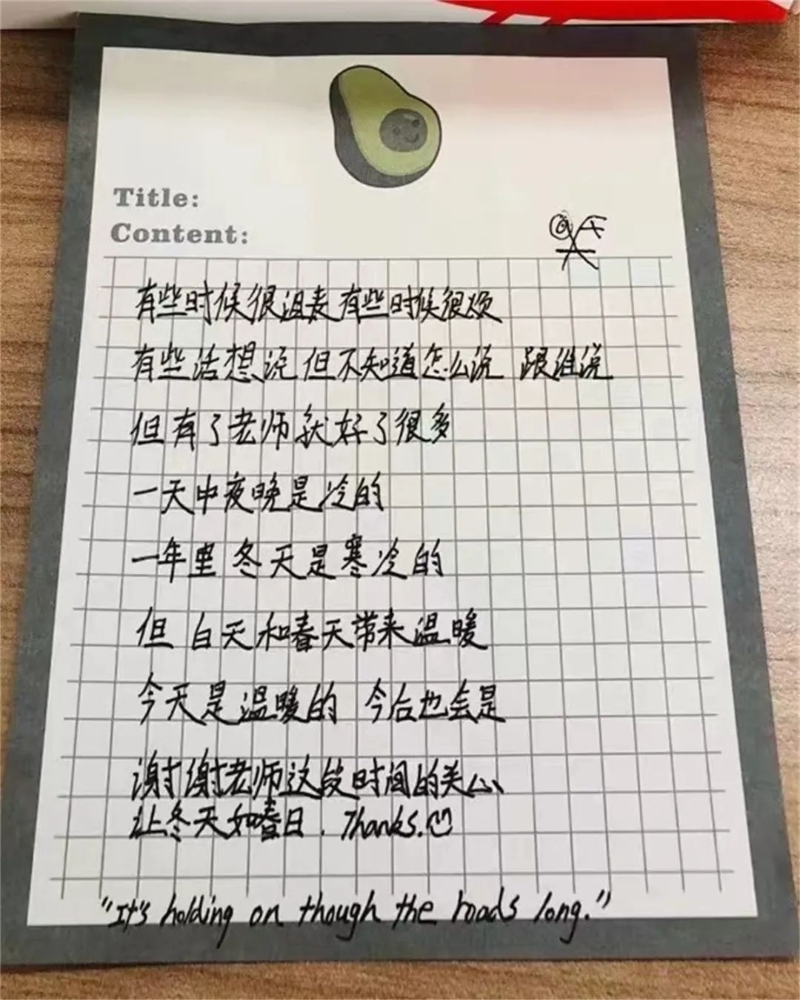 Title:
Content:
有些时候很沮丧 有些时候很烦
有些话想说 但不知道怎么说 跟谁说
但有了老师就好了很多
一天中夜晚是冷的
一年里 冬天是寒冷的
但 白天和春天带来温暖
今天是温暖的 今后也会是
谢谢老师这段时间的关心
让冬天如春日. Thanks.
"It's holding on though the roads long."